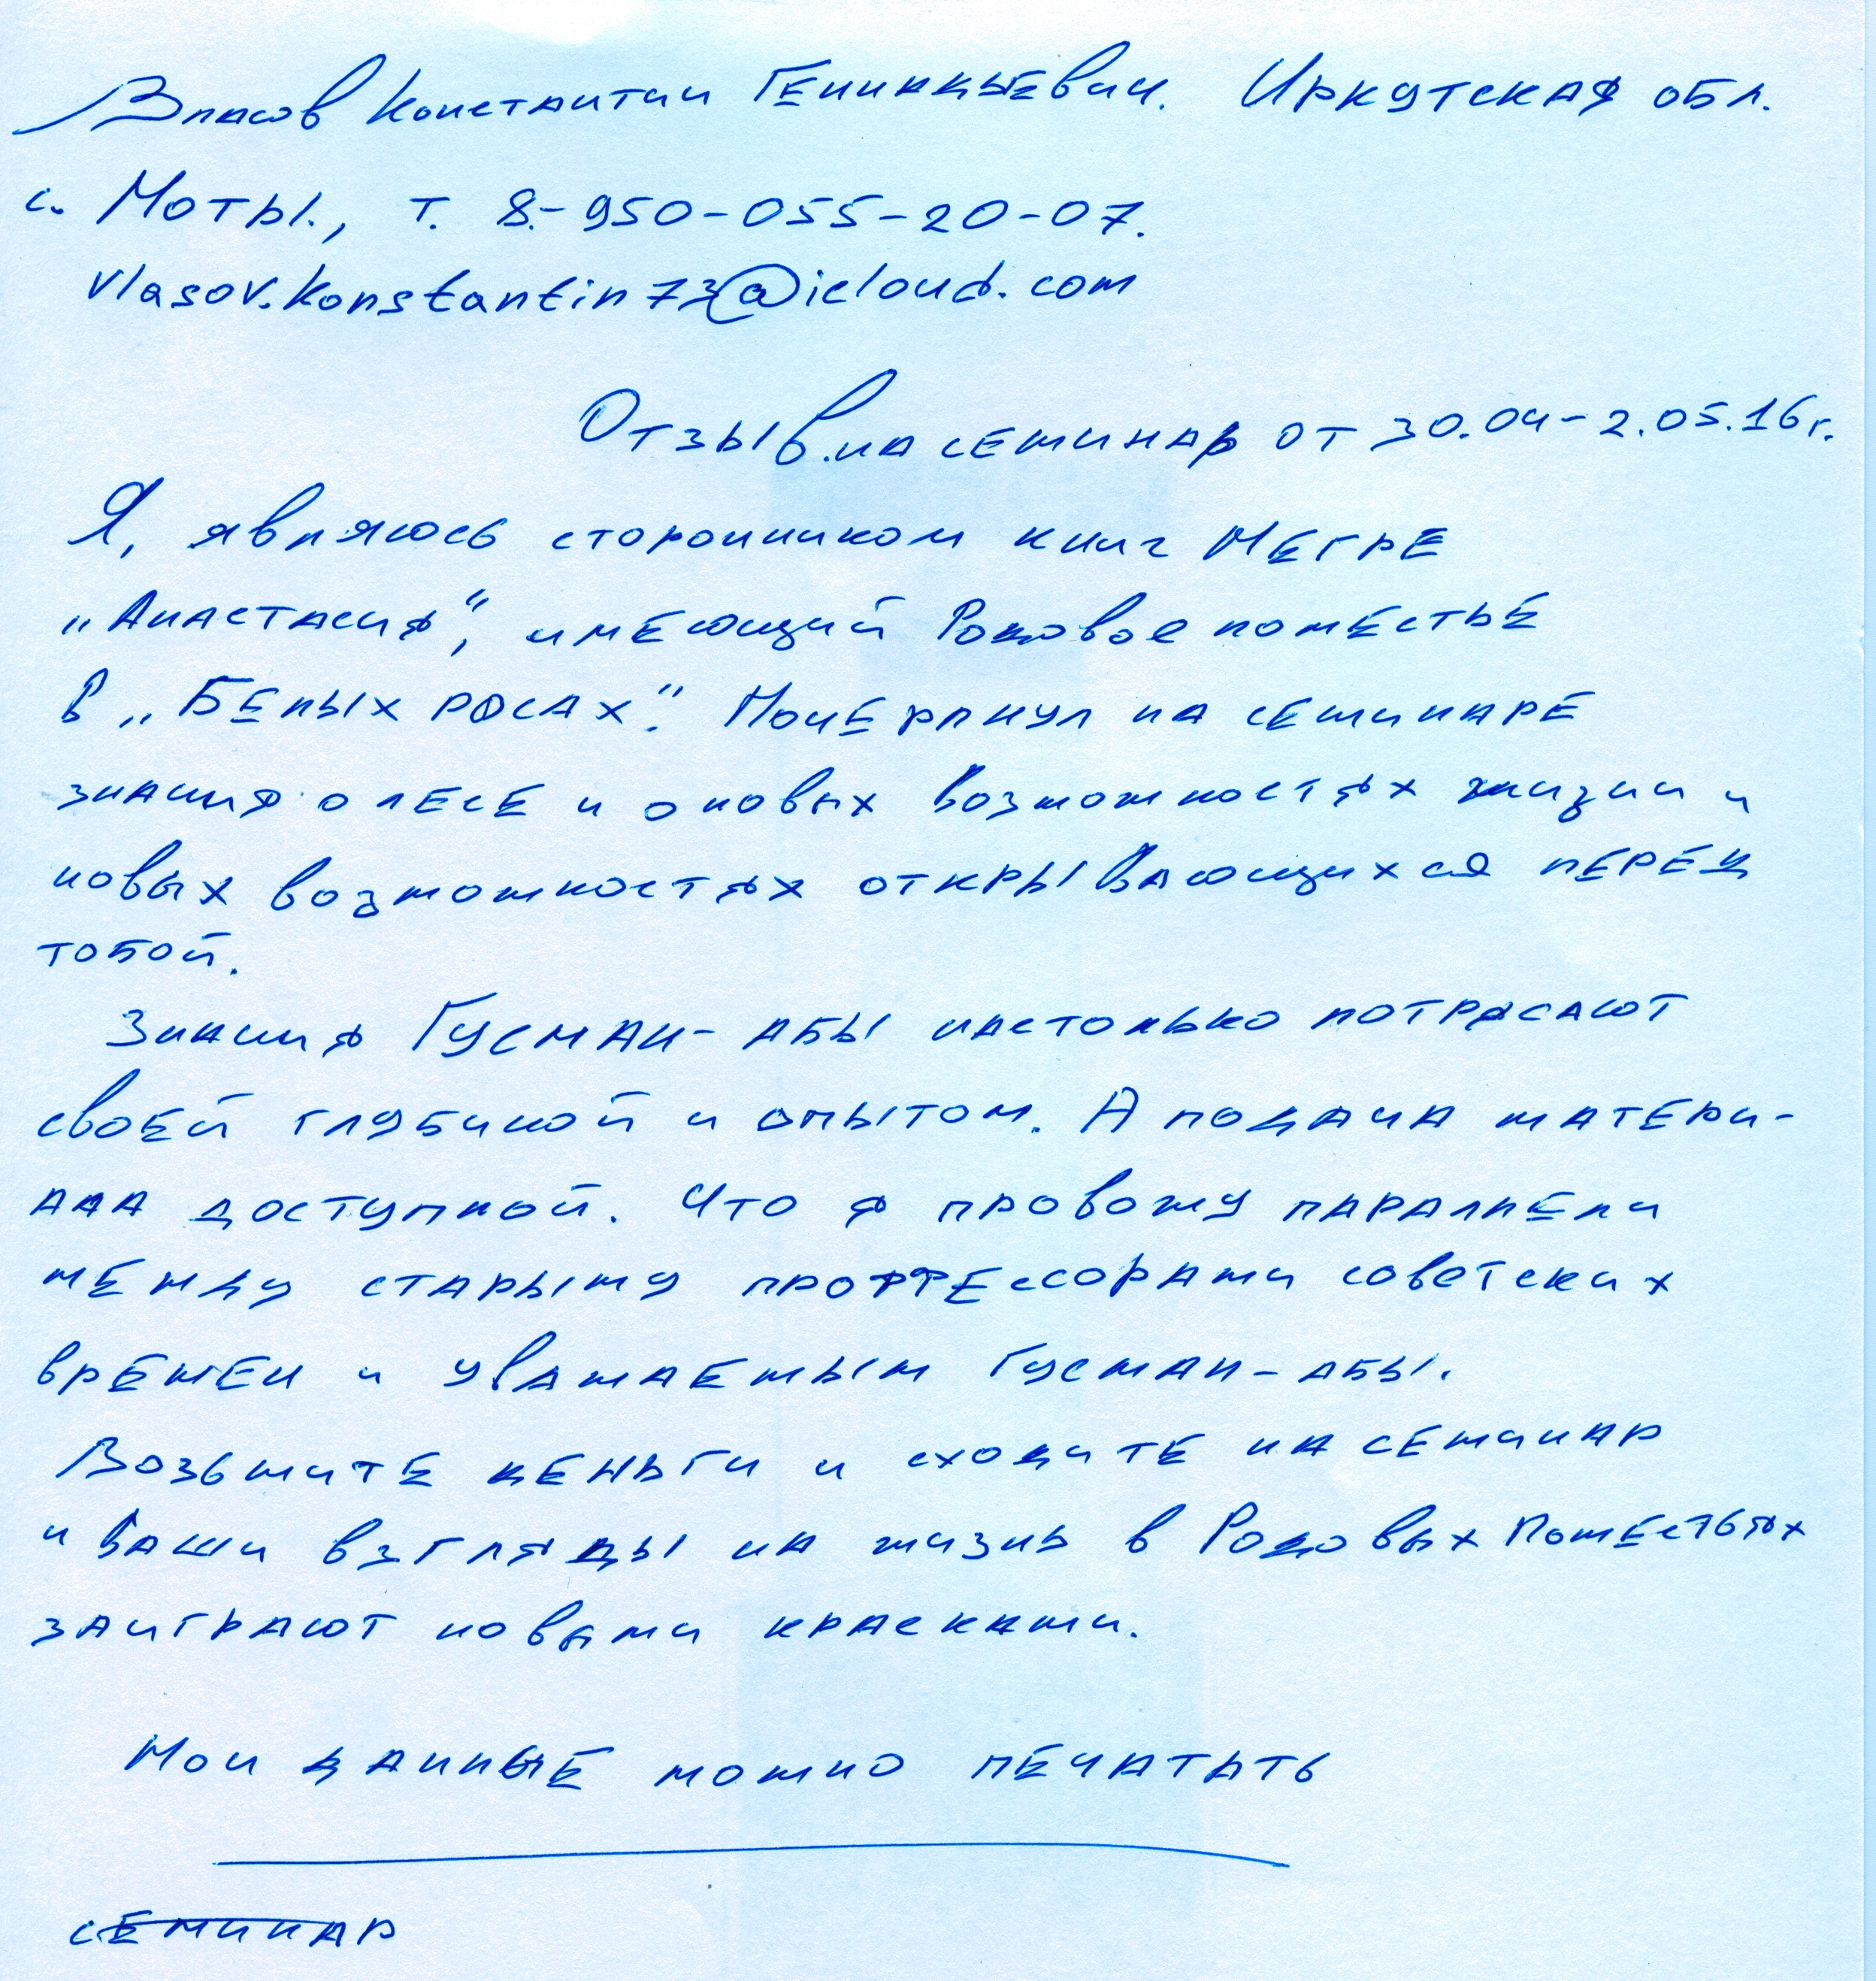 Власов Константин Гениндыевич. Иркутская обл.
с. Моты., т. 8-950-055-20-07.
vlasov.konstantin73@icloud.com
Отзыв на семинар от 30.04-2.05.16г.
Я, являюсь сторонником книг Мегре
„Анастасия“, имеющий Родовое поместье
в „Белых росах“. Почерпнул на семинаре
знания о лесе и о новых возможностях жизни и
новых возможностях открывающихся перед
тобой.
Знания Гусман-абы настолько потрясают
своей глубиной и опытом. А подача матери-
ала доступной. Что я провожу параллели
между старыму профессорами советских
времен и уважаемым Гусман-абы.
Возьмите деньги и сходите на семинар
и Ваши взгляды на жизнь в Родовых Поместьях
заиграют новыми красками.
Мои данные можно печатать
семинар